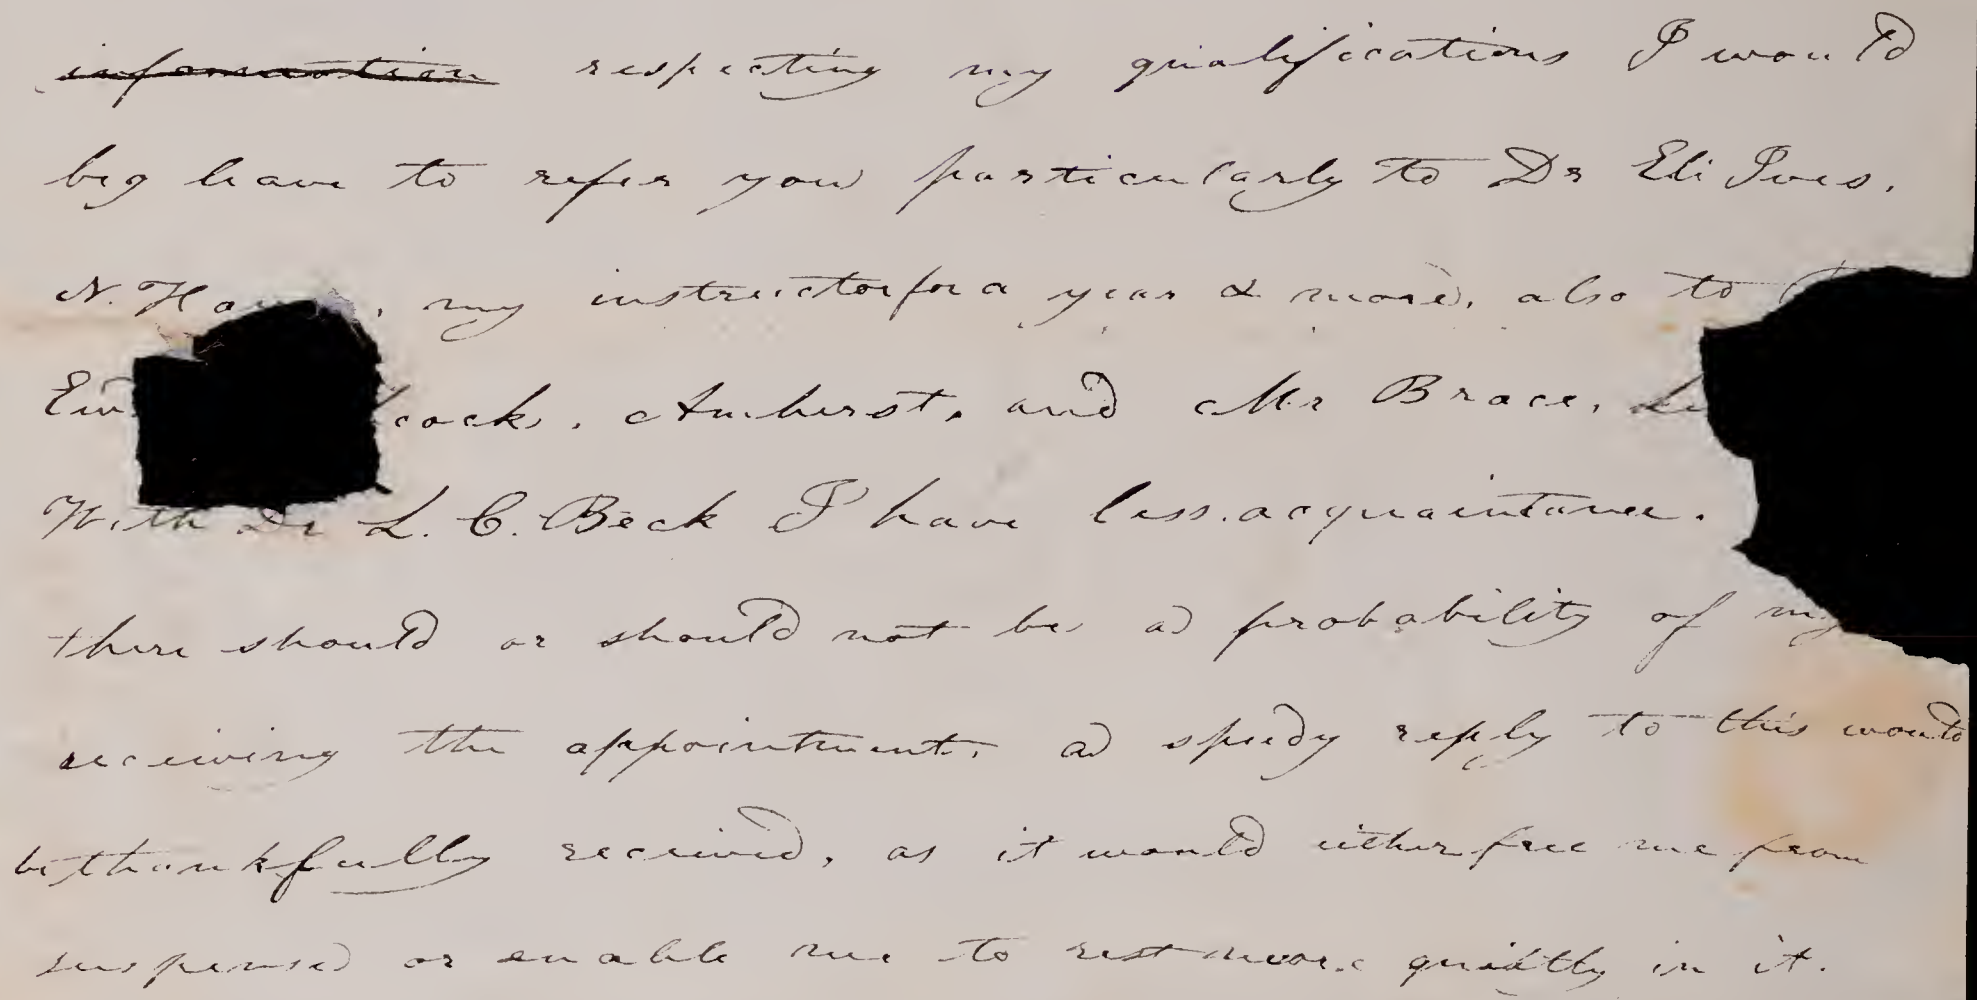 information respecting my qualifications I would
beg leave to refer you particularly to Dr Eli Ives.
N. Ha , my instructor for a year & more, also to
cock, Amherst, and Mr Brace,
With Dr L. C. Beck I have less acquaintance.
there should or should not be a probability of my
receiving the appointment, a speedy reply to this would
be thankfully received, as it would either free me from
suspense or enable me to rest more quietly in it.